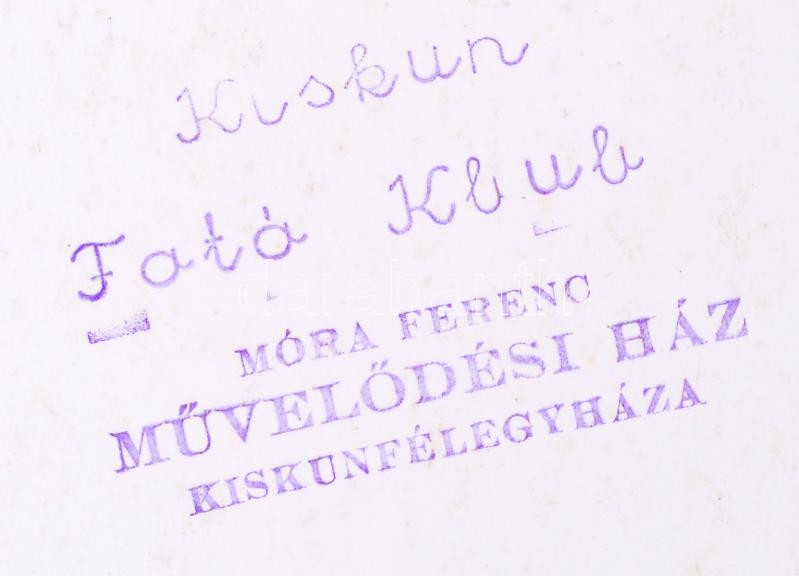 Kiskun
Fotó Klub
darabanth
MÓRA FERENC
MŰVELŐDÉSI HÁZ
KISKUNFÉLEGYHÁZA